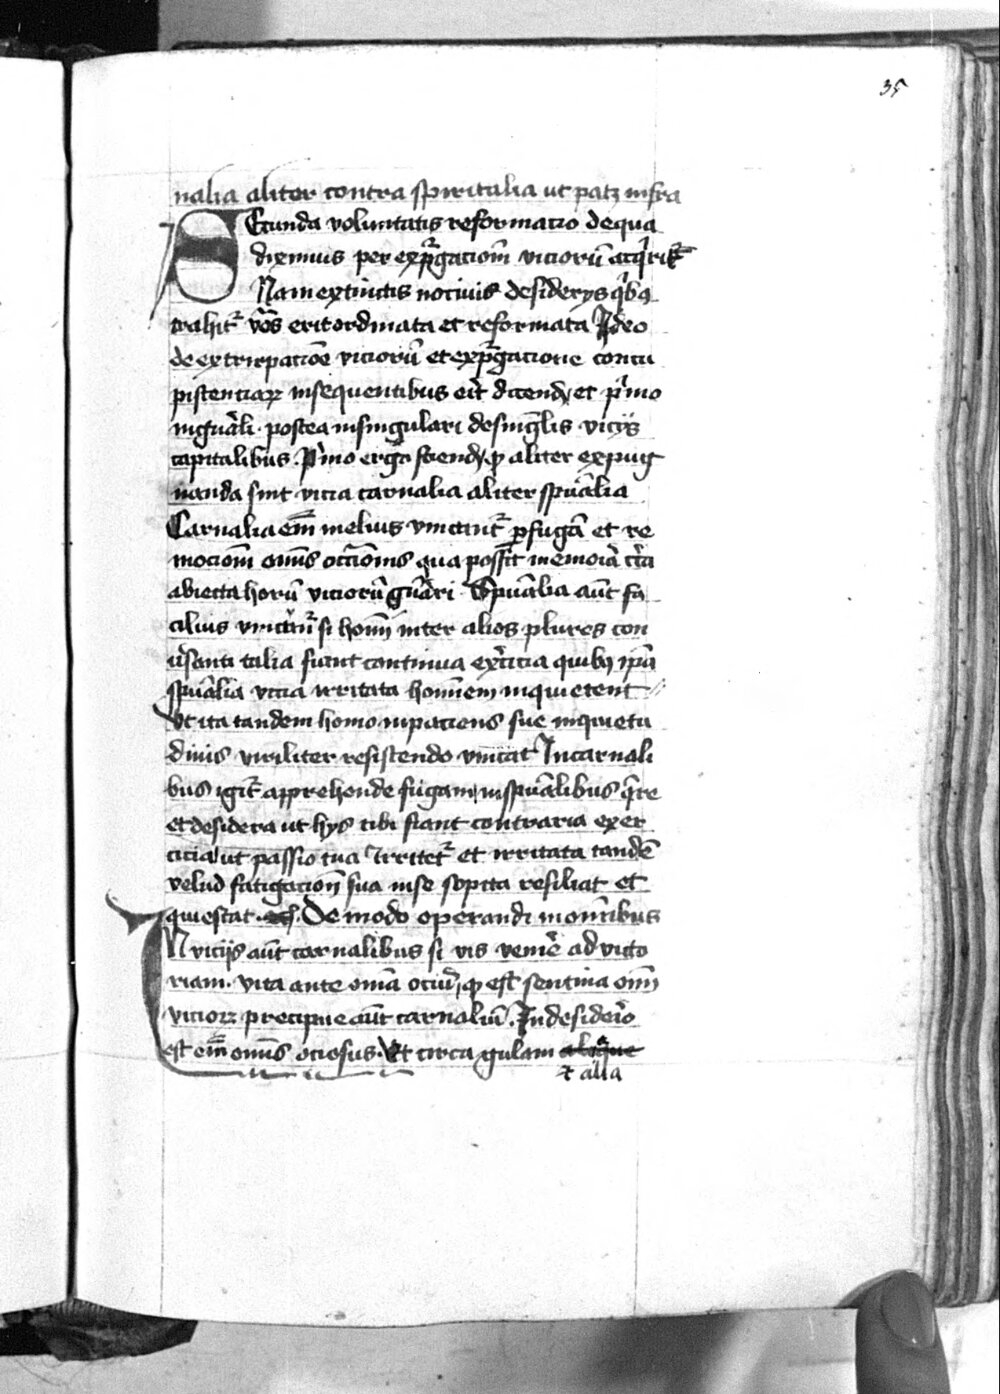 35
nalia aliter contra spiritalia ut patꝫ infra
SEcunda voluntatis reformacio de qua
diximus per exp̄gacionē viciorū acq̄rit᷑
Nam extinctis nocivis desiderys qͥbꝫ
trahit᷑ vōs erit ordinata et reformata Ideo
de extirpacōe viciorū et exp̄gacione concu
piscenciaꝝ in sequentibus erit dicendū et pͥmo
in gn̄ali · postea in singulari de singlis vicijs
capitalibus · Pͥmo ergo sciendū ꝙ aliter expug
nanda sunt vicia carnalia aliter spūalia
Carnalia em̄ melius vincunt᷑ ꝑ fugā et re
mocionē omīs occōnis qua possit memoria circa
abiecta horū viciorū gn̄ari · Spūalia aūt fa
cilius vincunt᷑ si homī inter alios plures con
ūsanti talia fiunt continua exͤrcicia quibꝫ ipā
spūalia vicia irritata hominem inquietent
Ut ita tandem homo inpaciens sue inquietu
dinis viriliter resistendo vincat In carnali
bus igit᷑ apprehende fugam in spūalibus q̄re
et desidera ut hys tibi fiant contraria exer
cicia ut passio tua irritet᷑ et irritata tandē
velud fatigacionē sua in se sopita resiliat et
quiescat · De modo operandi in omībus
IN vicijs aūt carnalibus si vis venire ad victo
riam · vita ante om̄ia ociū ꝙ est sentina om̄i
vicioꝝ precipue aūt carnaliū · In desiderio
est em̄ om̄is ociosus · Et circa gulam
et alia